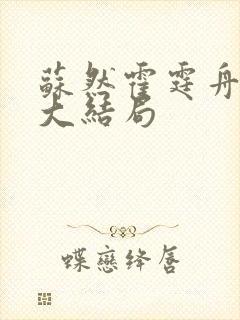 蘇然霍霆舟
大結局
蝶戀绛唇